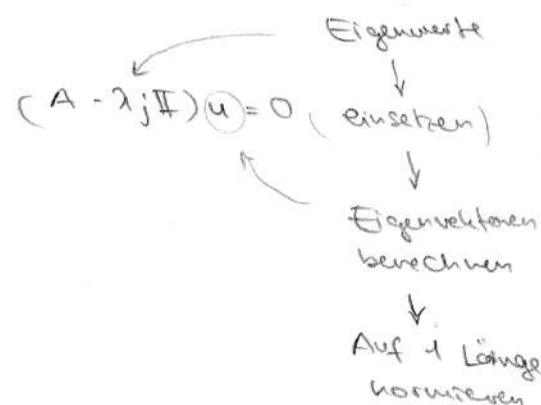 Eigenwerte
(A - λj𝕀) u = 0 (einsetzen)
Eigenvektoren
berechnen
Auf 1 Länge
normieren